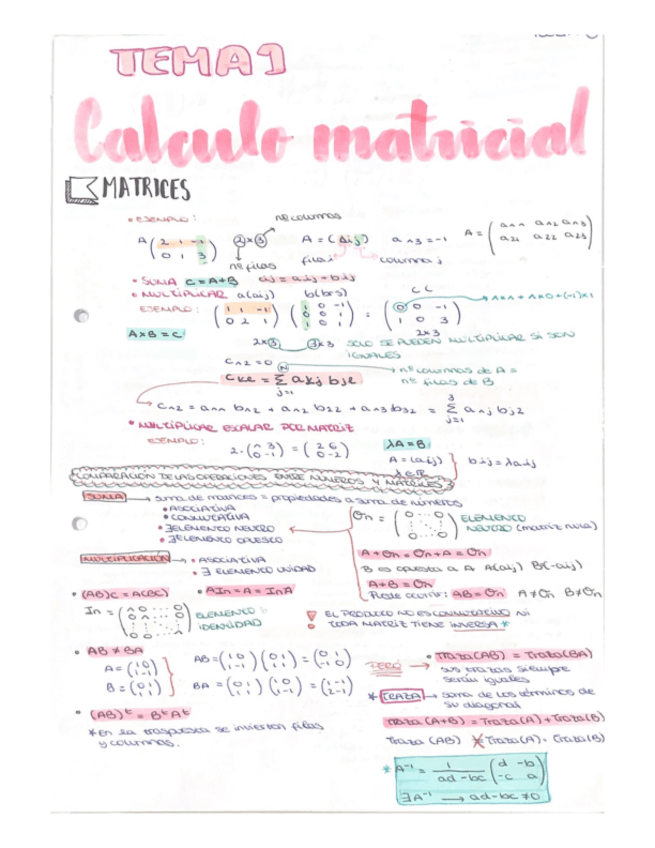 TEMA 1
Calculo matricial
MATRICES
• EJEMPLO:
nº columnas
A (2 1 -1 / 0 1 3) 2x3 A = (aij) a13 = -1 A = (a11 a12 a13 / a21 a22 a23)
nº filas fila i columna j
• SUMA C = A+B cij = aij + bij
• MULTIPLICAR a(aij) b(brs)
EJEMPLO: (1 1 -1 / 0 2 1) (1 0 -1 / 0 0 0 / 1 0 1) = (0 0 -1 / 1 0 3)
AxB = C
2x3 3x3 2x3 SOLO SE PUEDEN MULTIPLICAR SI SON
IGUALES
C12 = 0
nº columnas de A =
nº filas de B
C12 = a11 b12 + a12 b22 + a13 b32 = Σ a1j bj2
j=1
• MULTIPLICAR ESCALAR POR MATRIZ
EJEMPLO: 2·(1 3 / 0 -1) = (2 6 / 0 -2)
λA = B
A = (aij)
λ ∈ R
bij = λaij
COMPARACIÓN DE LAS OPERACIONES ENTRE NÚMEROS Y MATRICES
SUMA → suma de matrices = propiedades a suma de números
• ASOCIATIVA
• CONMUTATIVA
• ∃ ELEMENTO NEUTRO
• ∃ ELEMENTO OPUESTO
On = (0 ... 0 / 0 ... 0) ELEMENTO
NEUTRO (matriz nula)
A + On = On + A = On
B es opuesta a A A(aij) B(-aij)
A + B = On
Puede ocurrir: AB = On A ≠ On B ≠ On
MULTIPLICACIÓN → • ASOCIATIVA
• ∃ ELEMENTO UNIDAD
• (AB)C = A(BC) • AIn = A = InA
In = (1 0 ... 0 / 0 1 ... 0 / 0 0 ... 1) ELEMENTO
IDENTIDAD
EL PRODUCTO NO ES CONMUTATIVO NI
TODA MATRIZ TIENE INVERSA *
• AB ≠ BA
A = (1 0 / 1 -1)
B = (0 1 / 1 1)
AB = (1 0 / 1 -1) (0 1 / 1 1) = (0 1 / -1 0)
BA = (0 1 / 1 1) (1 0 / 1 -1) = (1 -1 / 2 -1)
PERO → • Traza(AB) = Traza(BA)
sus trazas siempre
serán iguales
* TRAZA → suma de los términos de
su diagonal
Traza (A+B) = Traza(A) + Traza(B)
Traza (AB) ≠ Traza(A) · Traza(B)
• (AB)ᵗ = BᵗAᵗ
* En la traspuesta se invierten filas
y columnas.
* A⁻¹ = 1 / ad - bc (d -b / -c a)
∃A⁻¹ → ad - bc ≠ 0